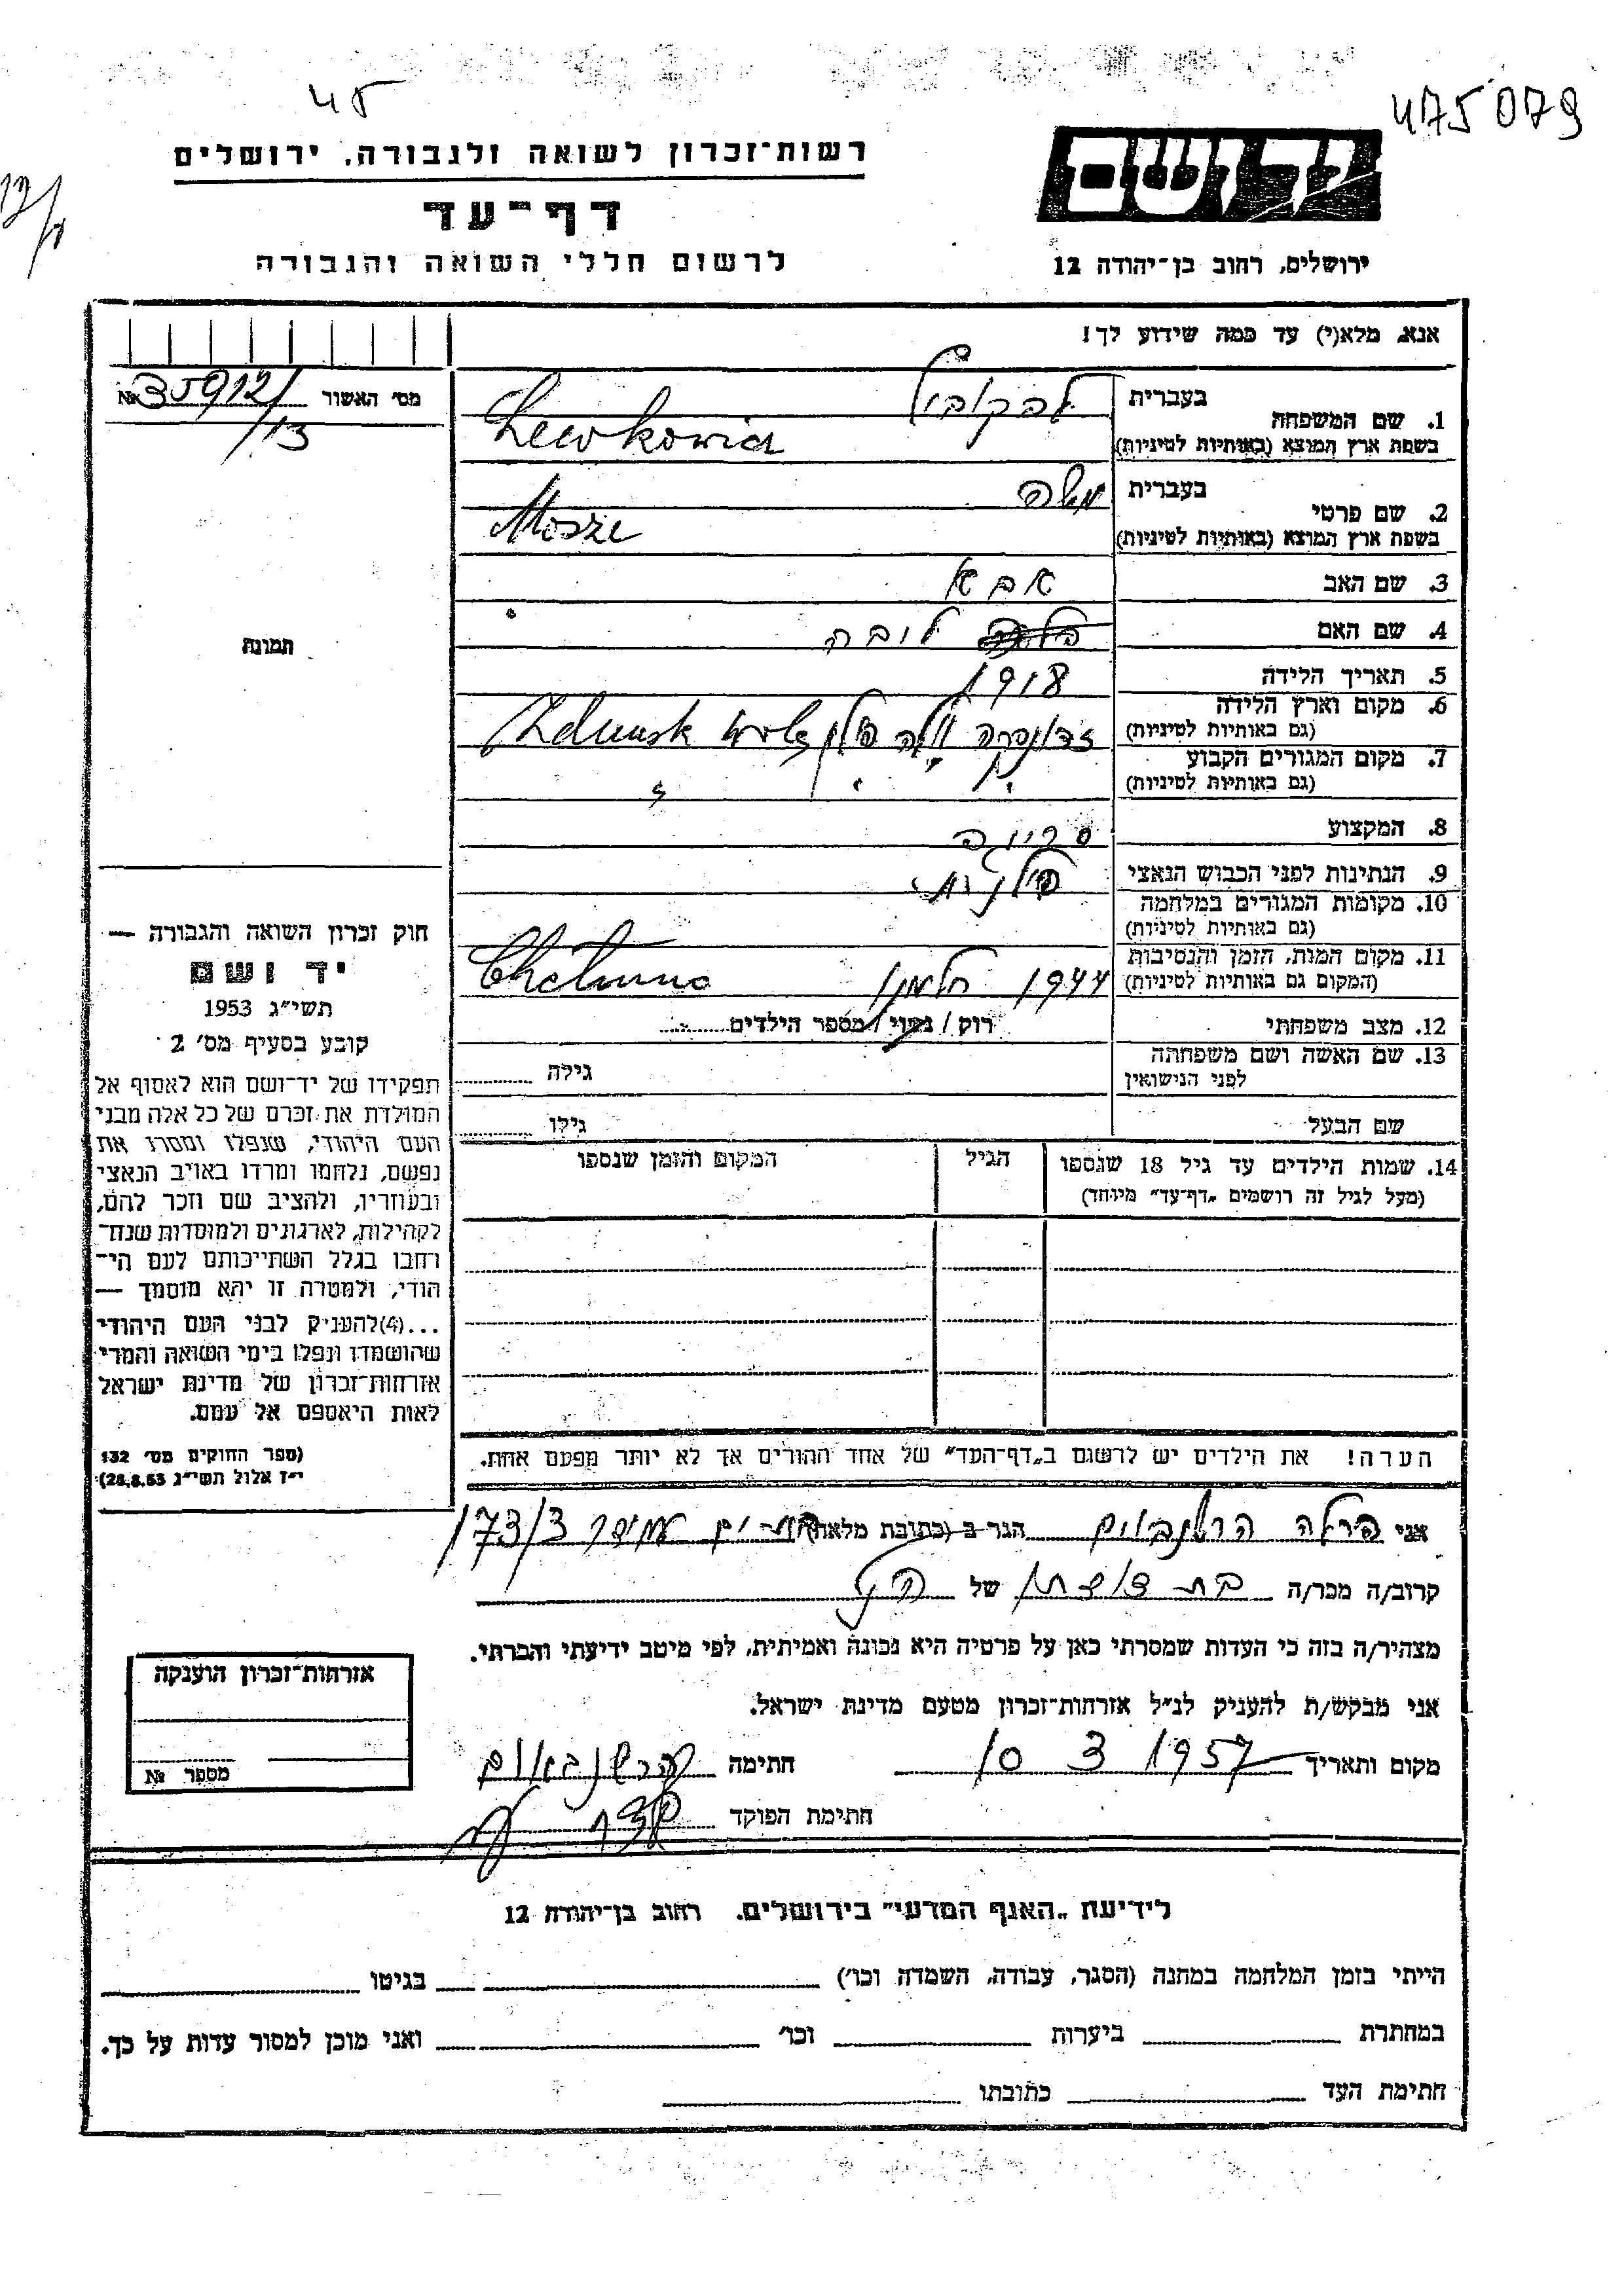 475079
45
יד ושם
רשות־זכרון לשואה ולגבורה, ירושלים
דף־עד
לרשום חללי השואה והגבורה
ירושלים, רחוב בן־יהודה 12
אנא, מלא(י) עד כמה שידוע לך!
מס׳ האשור № 35912/
/13
תמונה
1. שם המשפחה
בעברית לבקוביץ
בשפת ארץ המוצא (באותיות לטיניות) Lewkowicz
2. שם פרטי
בעברית משה
בשפת ארץ המוצא (באותיות לטיניות) Mosze
3. שם האב אבא
4. שם האם לובה
5. תאריך הלידה 1918
6. מקום וארץ הלידה
(גם באותיות לטיניות) זדונסקה וולה פולין Zdunsk Wola
7. מקום המגורים הקבוע
(גם באותיות לטיניות)
8. המקצוע
9. הנתינות לפני הכבוש הנאצי פולנית
10. מקומות המגורים במלחמה
(גם באותיות לטיניות)
11. מקום המות, הזמן והנסיבות
(המקום גם באותיות לטיניות) 1944 חלמנו Chelmno
12. מצב משפחתי רוק / נשוי / מספר הילדים
13. שם האשה ושם משפחתה
לפני הנישואין גילה
שם הבעל גילו
14. שמות הילדים עד גיל 18 שנספו
(מעל לגיל זה רושמים „דף־עד” מיוחד)
הגיל
המקום והזמן שנספו
הערה! את הילדים יש לרשום ב„דף־העד” של אחד ההורים אך לא יותר מפעם אחת.
חוק זכרון השואה והגבורה —
יד ושם
תשי״ג 1953
קובע בסעיף מס׳ 2
תפקידו של יד־ושם הוא לאסוף אל
המולדת את זכרם של כל אלה מבני
העם היהודי, שנפלו ומסרו את
נפשם, נלחמו ומרדו באויב הנאצי
ובעוזריו, ולהציב שם וזכר להם,
לקהילות, לארגונים ולמוסדות שנח־
רחבו בגלל השתייכותם לעם הי־
הודי, ולמטרה זו יהא מוסמך —
...(4) להעניק לבני העם היהודי
שהושמדו ונפלו בימי השואה והמרי
אזרחות־זכרון של מדינת ישראל
לאות היאספם אל עמם.
(ספר החוקים מס׳ 132
י״ז אלול תשי״ג 28.8.53)
אני פראלה הרשנבוים הגר ב (כתובת מלאה) 173/3
קרוב/ה מכר/ה בת דודתו של הנ״ל
מצהיר/ה בזה כי העדות שמסרתי כאן על פרטיה היא נכונה ואמיתית, לפי מיטב ידיעתי והכרתי.
אני מבקש/ת להעניק לנ״ל אזרחות־זכרון מטעם מדינת ישראל.
מקום ותאריך 10 3 1957 חתימה הרשנבאום
חתימת הפוקד
אזרחות־זכרון הוענקה
מספר №
לידיעת „האגף המדעי” בירושלים. רחוב בן־יהודה 12
הייתי בזמן המלחמה במחנה (הסגר, עבודה, השמדה וכו׳) בגיטו
במחתרת ביערות וכו׳ ואני מוכן למסור עדות על כך.
חתימת העד כתובתו